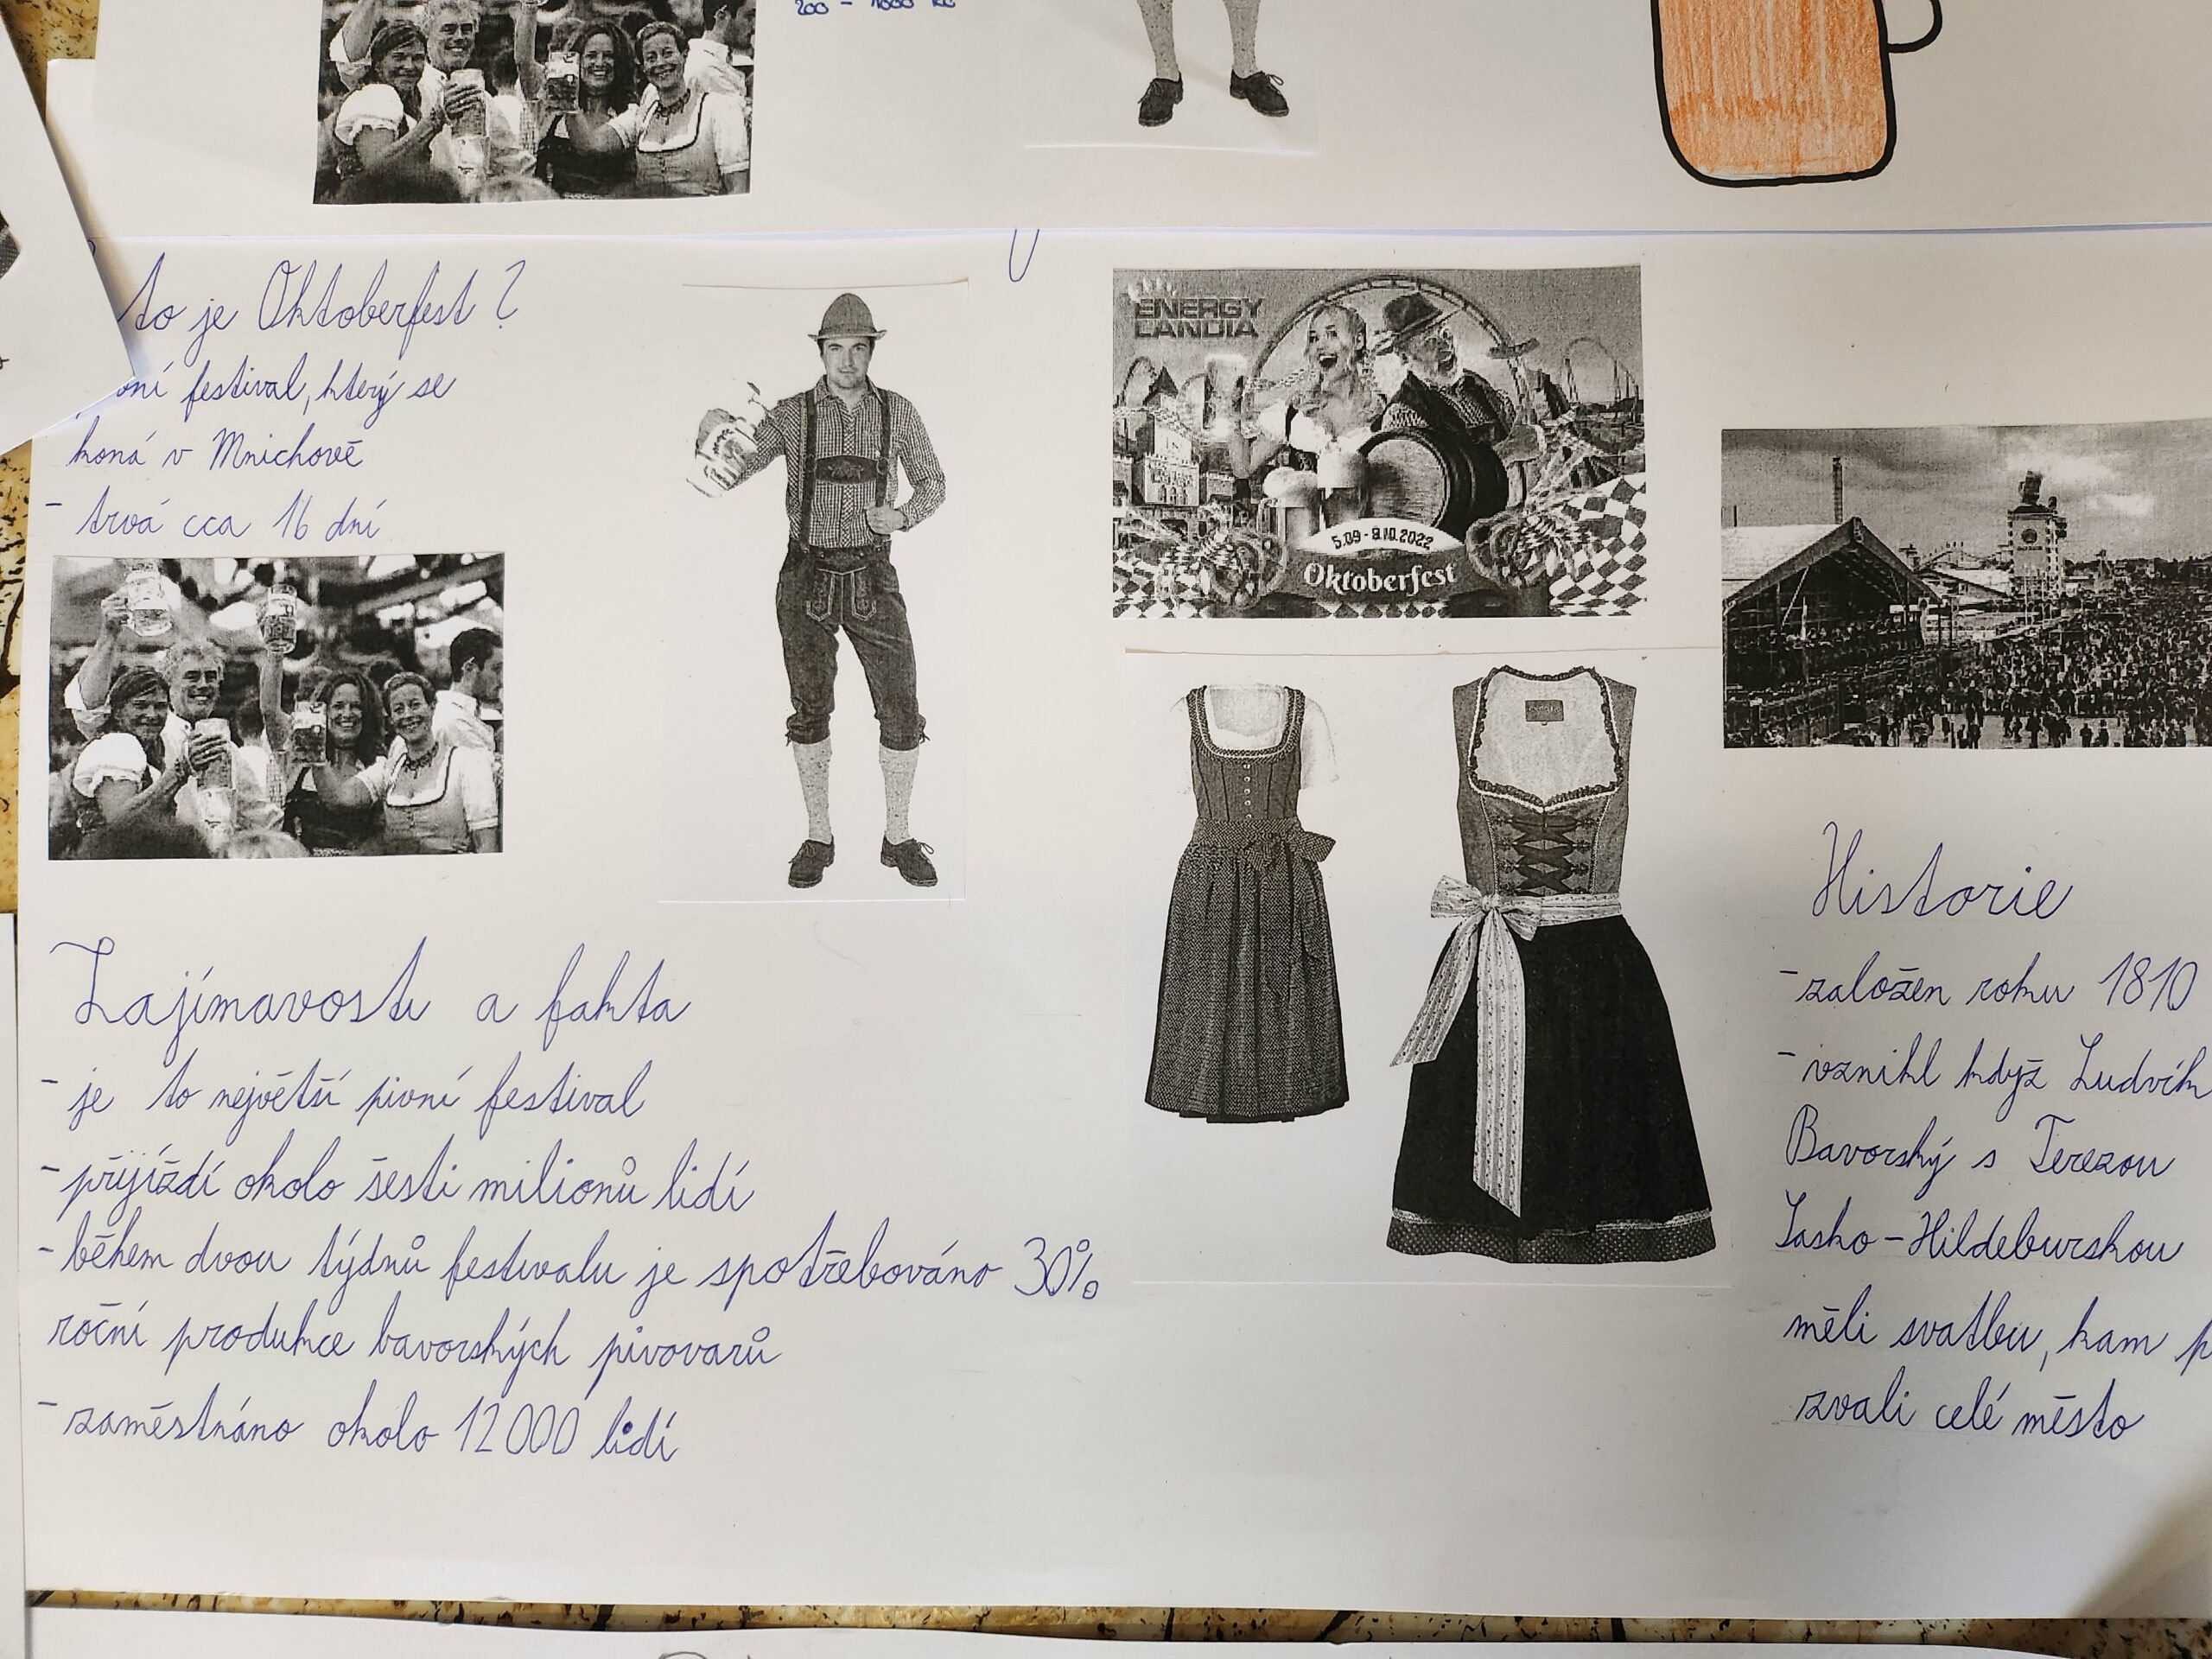 200 - 1000 Kč
to je Oktoberfest?
festival, který se
koná v Mnichově
- trvá cca 16 dní
ENERGY
LANDIA
5.09 - 9.10.2022
Oktoberfest
Zajímavosti a fakta
- je to největší pivní festival
- přijíždí okolo šesti milionů lidí
- během dvou týdnů festivalu je spotřebováno 30%
roční produkce bavorských pivovarů
- zaměstnáno okolo 12 000 lidí
Historie
- založen roku 1810
- vznikl když Ludvík
Bavorský s Terezou
Sasko-Hildeburskou
měli svatbu, kam p
zvali celé město